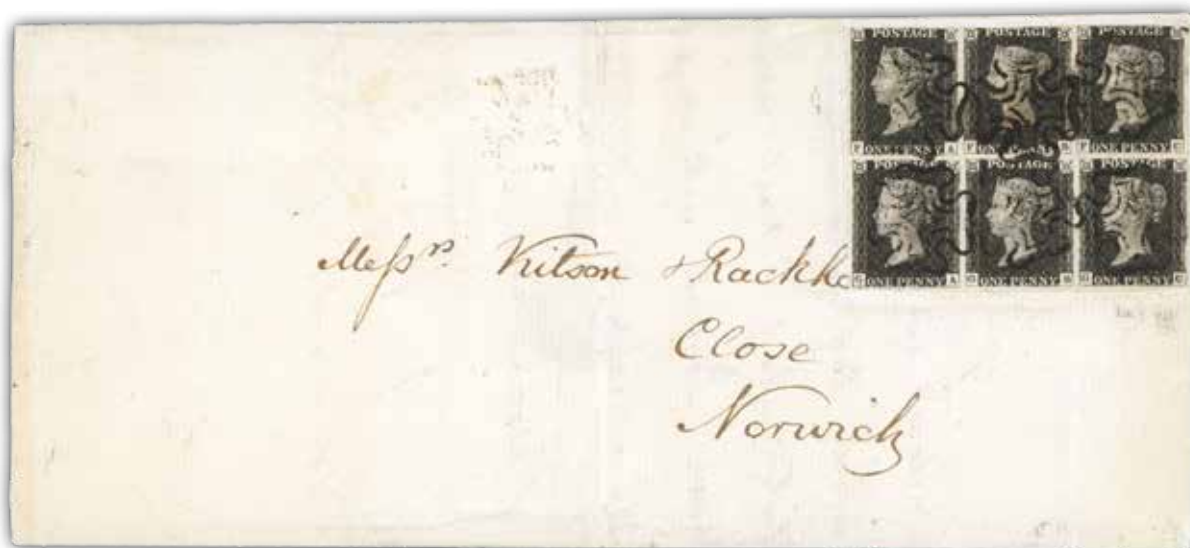 POSTAGE POSTAGE POSTAGE
F ONE PENNY A F ONE PENNY B F ONE PENNY C
POSTAGE POSTAGE POSTAGE
G ONE PENNY A G ONE PENNY B G ONE PENNY C
Messrs. Kitson & Rackh
Close
Norwich